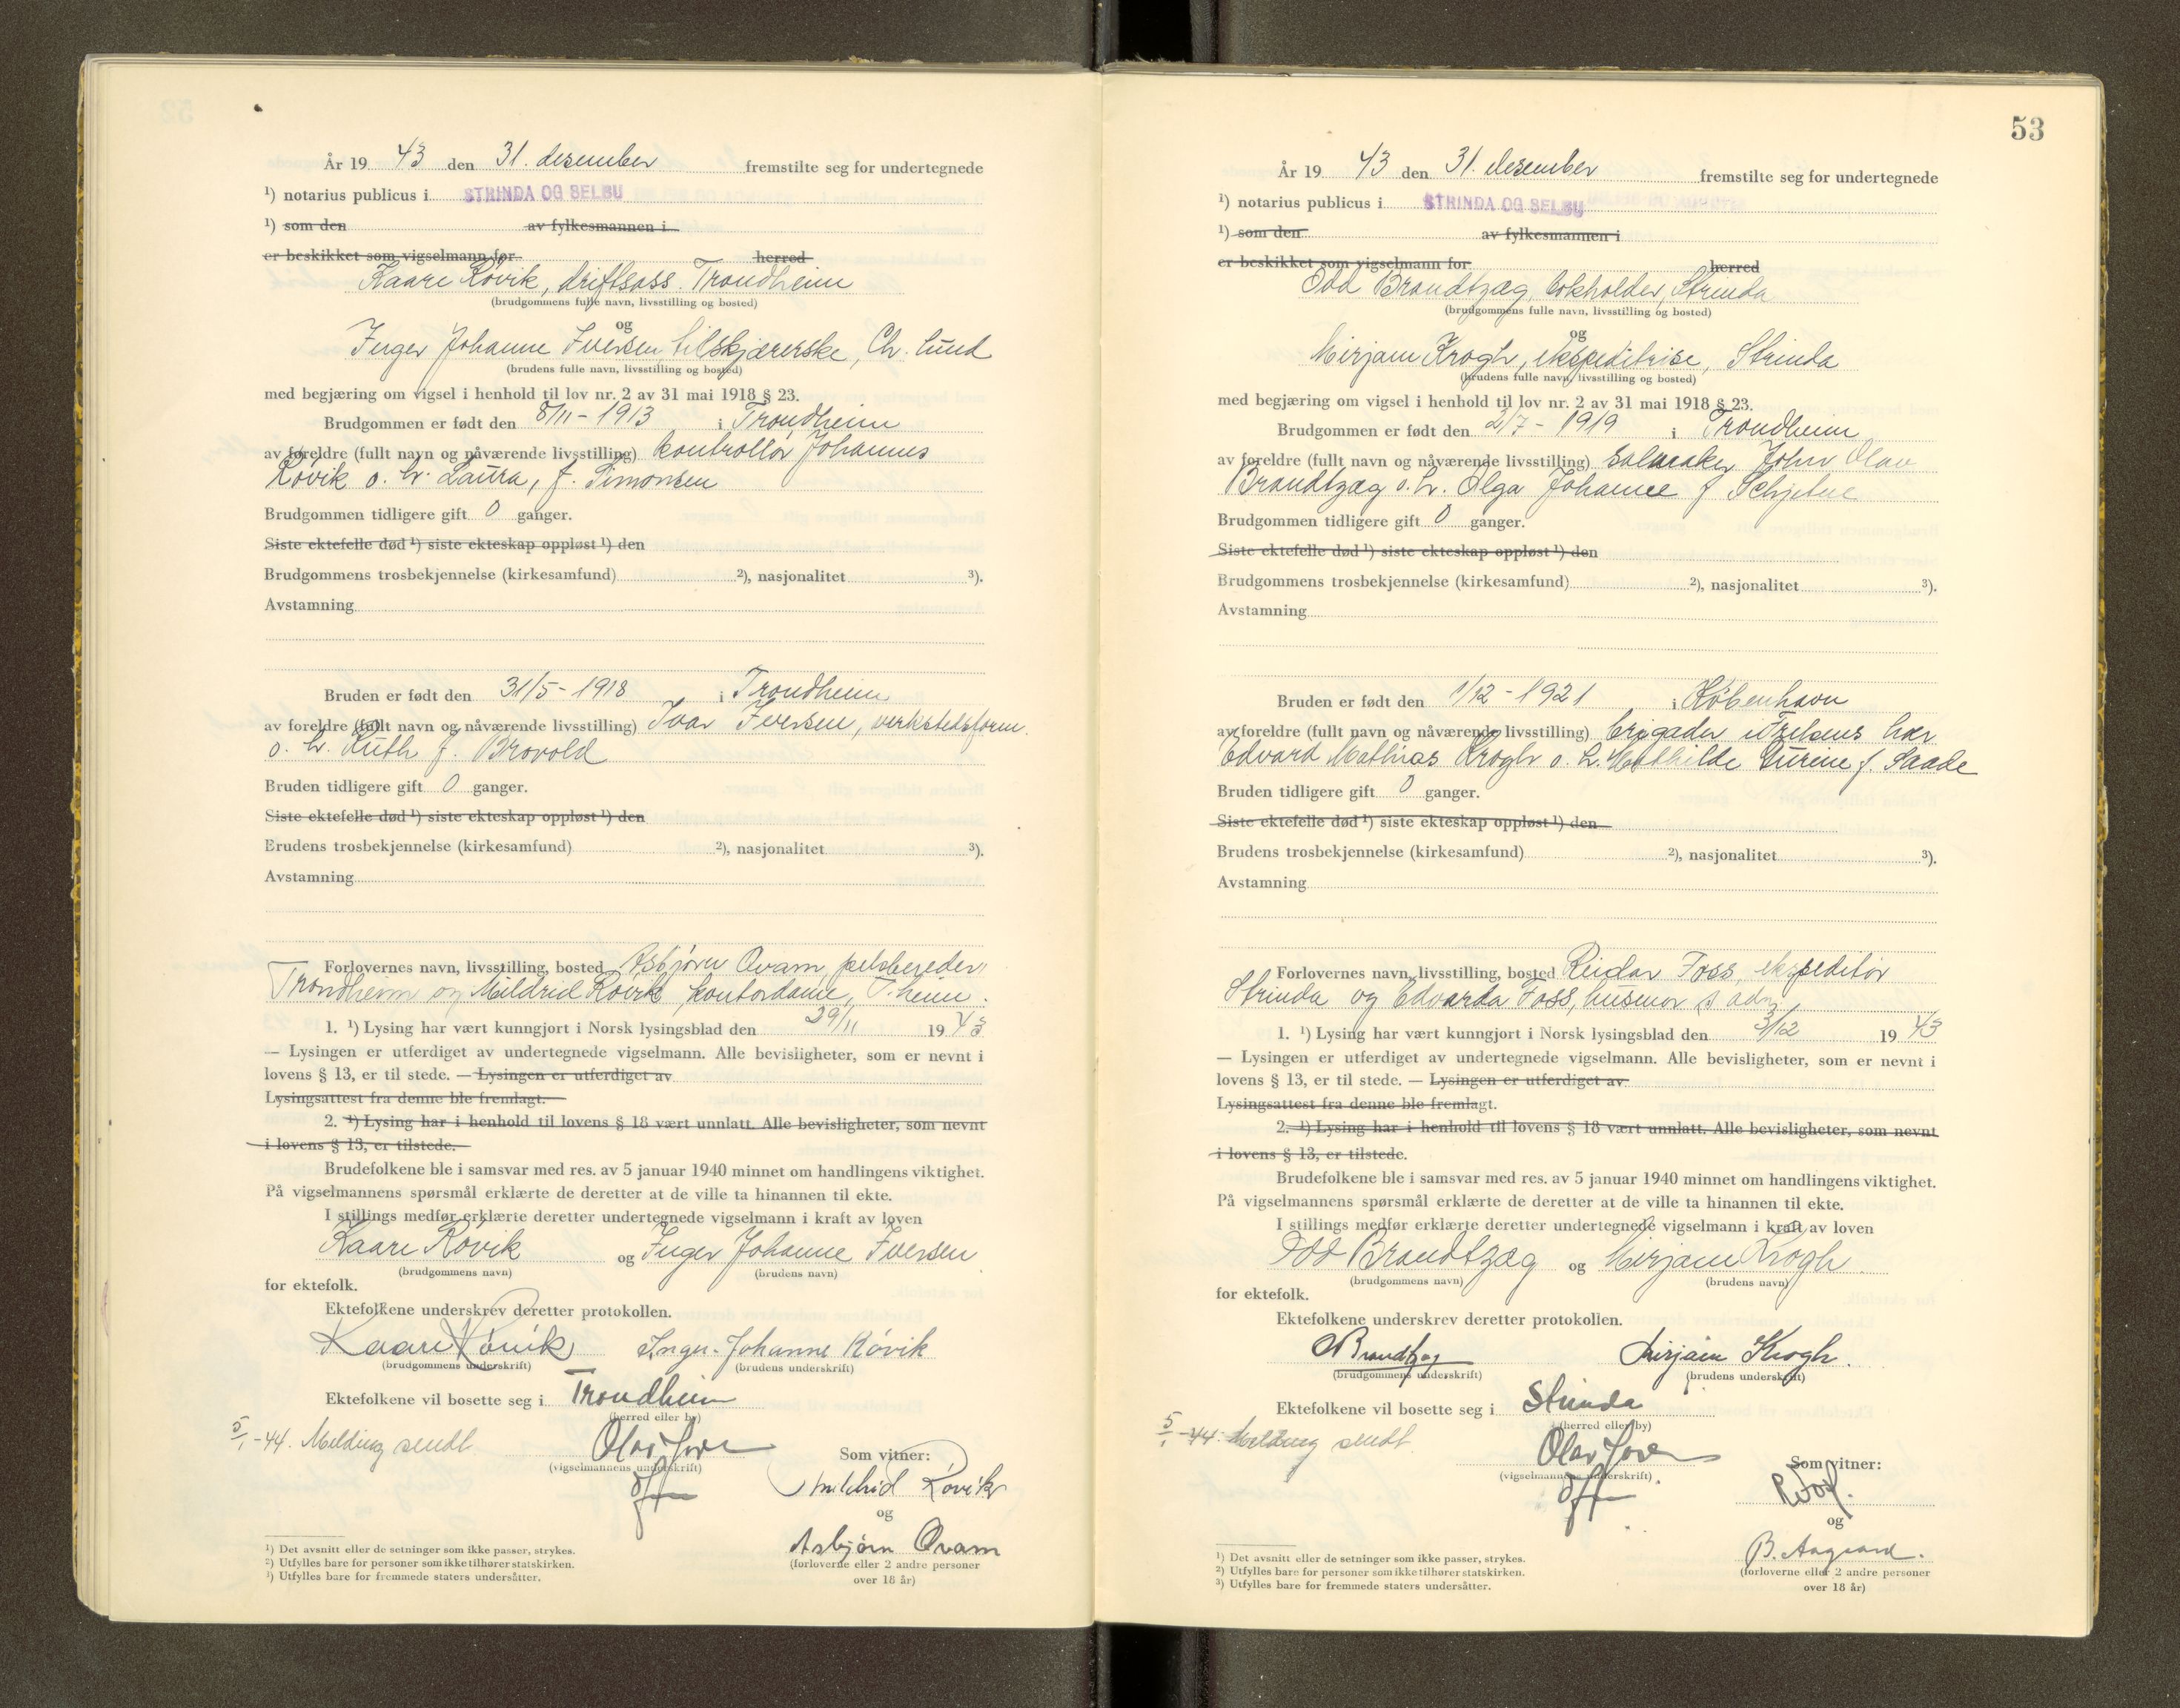 År 19 43 den 31. desember fremstilte seg for undertegnede
¹) notarius publicus i STRINDA OG SELBU
¹) som den av fylkesmannen i
er beskikket som vigselmann for herred
Kaare Røvik, driftsass. Trondheim
(brudgommens fulle navn, livsstilling og bosted)
og
Inger Johanne Iversen, tilskjærerske, Chr. lund
(brudens fulle navn, livsstilling og bosted)
med begjæring om vigsel i henhold til lov nr. 2 av 31 mai 1918 § 23.
Brudgommen er født den 8/11 - 1913 i Trondheim
av foreldre (fullt navn og nåværende livsstilling) kontrollør Johannes
Røvik o. h. Laura, f. Simonsen
Brudgommen tidligere gift 0 ganger.
Siste ektefelle død ¹) siste ekteskap oppløst ¹) den
Brudgommens trosbekjennelse (kirkesamfund) ²), nasjonalitet ³).
Avstamning
Bruden er født den 31/5 - 1918 i Trondheim
av foreldre (fullt navn og nåværende livsstilling) Ivar Iversen, verkstedsform.
o. h. Ruth f. Brovold
Bruden tidligere gift 0 ganger.
Siste ektefelle død ¹) siste ekteskap oppløst ¹) den
Brudens trosbekjennelse (kirkesamfund) ²), nasjonalitet ³).
Avstamning
Forlovernes navn, livsstilling, bosted Asbjørn Qvam, pelsbereder,
Trondheim og Mildrid Røvik, kontordame, T.heim.
1. ¹) Lysing har vært kunngjort i Norsk lysingsblad den 29/11 19 43
— Lysingen er utferdiget av undertegnede vigselmann. Alle bevisligheter, som er nevnt i
lovens § 13, er til stede. — Lysingen er utferdiget av
Lysingsattest fra denne ble fremlagt.
2. ¹) Lysing har i henhold til lovens § 18 vært unnlatt. Alle bevisligheter, som nevnt
i lovens § 13, er tilstede.
Brudefolkene ble i samsvar med res. av 5 januar 1940 minnet om handlingens viktighet.
På vigselmannens spørsmål erklærte de deretter at de ville ta hinannen til ekte.
I stillings medfør erklærte deretter undertegnede vigselmann i kraft av loven
Kaare Røvik og Inger Johanne Iversen
(brudgommens navn) (brudens navn)
for ektefolk.
Ektefolkene underskrev deretter protokollen.
Kaare Røvik Inger-Johanne Røvik
(brudgommens underskrift) (brudens underskrift)
Ektefolkene vil bosette seg i Trondheim
(herred eller by)
5/1-44. Melding sendt.
(vigselmannens underskrift)
Som vitner:
Mildrid Røvik
og
Asbjørn Qvam
(forloverne eller 2 andre personer
over 18 år)
¹) Det avsnitt eller de setninger som ikke passer, strykes.
²) Utfylles bare for personer som ikke tilhører statskirken.
³) Utfylles bare for fremmede staters undersåtter.
53
År 19 43 den 31. desember fremstilte seg for undertegnede
¹) notarius publicus i STRINDA OG SELBU
¹) som den av fylkesmannen i
er beskikket som vigselmann for herred
Odd Brandtzæg, bokholder, Strinda
(brudgommens fulle navn, livsstilling og bosted)
og
Mirjam Krogh, ekspeditrise, Strinda
(brudens fulle navn, livsstilling og bosted)
med begjæring om vigsel i henhold til lov nr. 2 av 31 mai 1918 § 23.
Brudgommen er født den 2/7 - 1919 i Trondheim
av foreldre (fullt navn og nåværende livsstilling) salmaker John Olav
Brandtzæg o. h. Olga Johanne f. Schjetne
Brudgommen tidligere gift 0 ganger.
Siste ektefelle død ¹) siste ekteskap oppløst ¹) den
Brudgommens trosbekjennelse (kirkesamfund) ²), nasjonalitet ³).
Avstamning
Bruden er født den 1/12 - 1921 i København
av foreldre (fullt navn og nåværende livsstilling) brigader i Frelsens hær
Edvard Mathias Krogh o. h. Mathilde f. Saade
Bruden tidligere gift 0 ganger.
Siste ektefelle død ¹) siste ekteskap oppløst ¹) den
Brudens trosbekjennelse (kirkesamfund) ²), nasjonalitet ³).
Avstamning
Forlovernes navn, livsstilling, bosted Reidar Foss, ekspeditør
Strinda og Edvarda Foss, husmor s adr.
1. ¹) Lysing har vært kunngjort i Norsk lysingsblad den 3/12 19 43
— Lysingen er utferdiget av undertegnede vigselmann. Alle bevisligheter, som er nevnt i
lovens § 13, er til stede. — Lysingen er utferdiget av
Lysingsattest fra denne ble fremlagt.
2. ¹) Lysing har i henhold til lovens § 18 vært unnlatt. Alle bevisligheter, som nevnt
i lovens § 13, er tilstede.
Brudefolkene ble i samsvar med res. av 5 januar 1940 minnet om handlingens viktighet.
På vigselmannens spørsmål erklærte de deretter at de ville ta hinannen til ekte.
I stillings medfør erklærte deretter undertegnede vigselmann i kraft av loven
Odd Brandtzæg og Mirjam Krogh
(brudgommens navn) (brudens navn)
for ektefolk.
Ektefolkene underskrev deretter protokollen.
OBrandtzæg Mirjam Krogh.
(brudgommens underskrift) (brudens underskrift)
Ektefolkene vil bosette seg i Strinda
(herred eller by)
5/1-44. Melding sendt.
(vigselmannens underskrift)
Som vitner:
R. Foss.
og
B. Aagaard.
(forloverne eller 2 andre personer
over 18 år)
¹) Det avsnitt eller de setninger som ikke passer, strykes.
²) Utfylles bare for personer som ikke tilhører statskirken.
³) Utfylles bare for fremmede staters undersåtter.